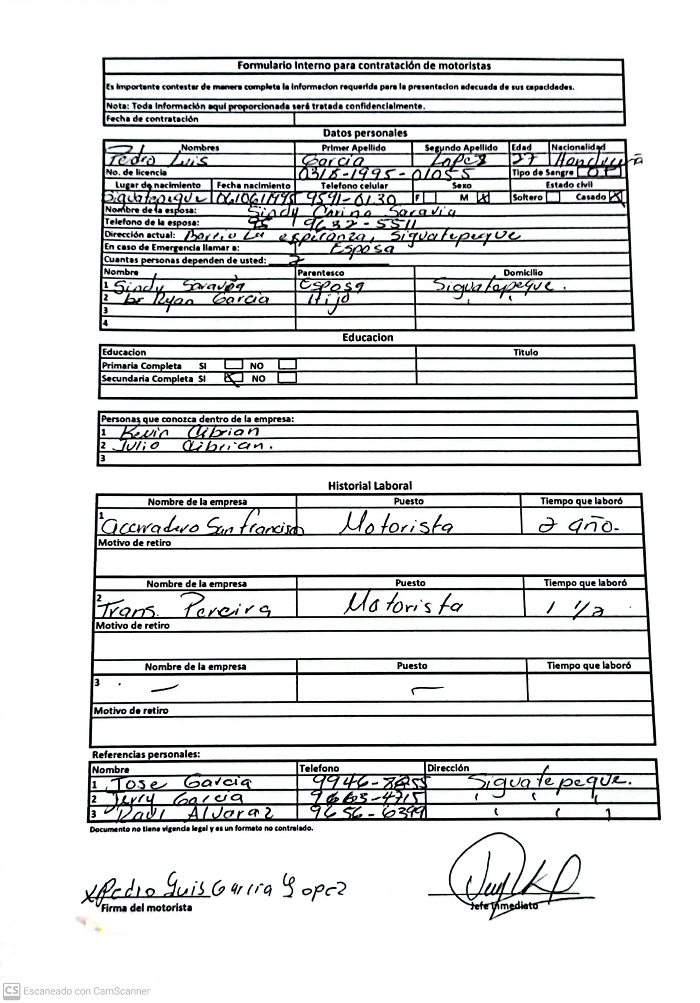 Formulario Interno para contratación de motoristas
Es importante contestar de manera completa la informacion requerida para la presentacion adecuada de sus capacidades.
Nota: Toda información aquí proporcionada será tratada confidencialmente.
Fecha de contratación
Datos personales
Nombres Primer Apellido Segundo Apellido Edad Nacionalidad
Pedro Luis Garcia Lopez 27 Hondureña
No. de licencia 0318-1995-01055 Tipo de Sangre
Lugar de nacimiento Fecha nacimiento Telefono celular Sexo Estado civil
Siguatepeque 06/06/1995 9591-0130 F M X Soltero Casado X
Nombre de la esposa: Sindy Carina Saravia
Telefono de la esposa: 9632-5511
Dirección actual: Barrio La esperanza, Siguatepeque
En caso de Emergencia llamar a: Esposa
Cuantas personas dependen de usted: 2
Nombre Parentesco Domicilio
1 Sindy Saravia Esposa Siguatepeque.
2 Ryan Garcia Hijo
3
4
Educacion
Educacion Titulo
Primaria Completa SI NO
Secundaria Completa SI X NO
Personas que conozca dentro de la empresa:
1 Kevin Cibrian
2 Julio Cibrian.
3
Historial Laboral
Nombre de la empresa Puesto Tiempo que laboró
1 San Francisco Motorista 2 año.
Motivo de retiro
Nombre de la empresa Puesto Tiempo que laboró
2 Trans. Pereira Motorista 1 1/2
Motivo de retiro
Nombre de la empresa Puesto Tiempo que laboró
3 . — —
Motivo de retiro
Referencias personales:
Nombre Telefono Dirección
1 Jose Garcia Siguatepeque.
2 Jerry Garcia
3 Raul Alvarez 9656-6399
Documento no tiene vigencia legal y es un formato no controlado.
X Pedro Luis Garcia Lopez
Firma del motorista Jefe inmediato
CS Escaneado con CamScanner